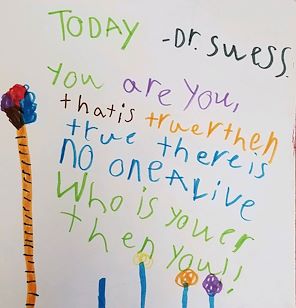 TODAY -Dr. suess.
you are you,
thatis truerthen
true there is
no oneAlive
Who is youer
then you!!